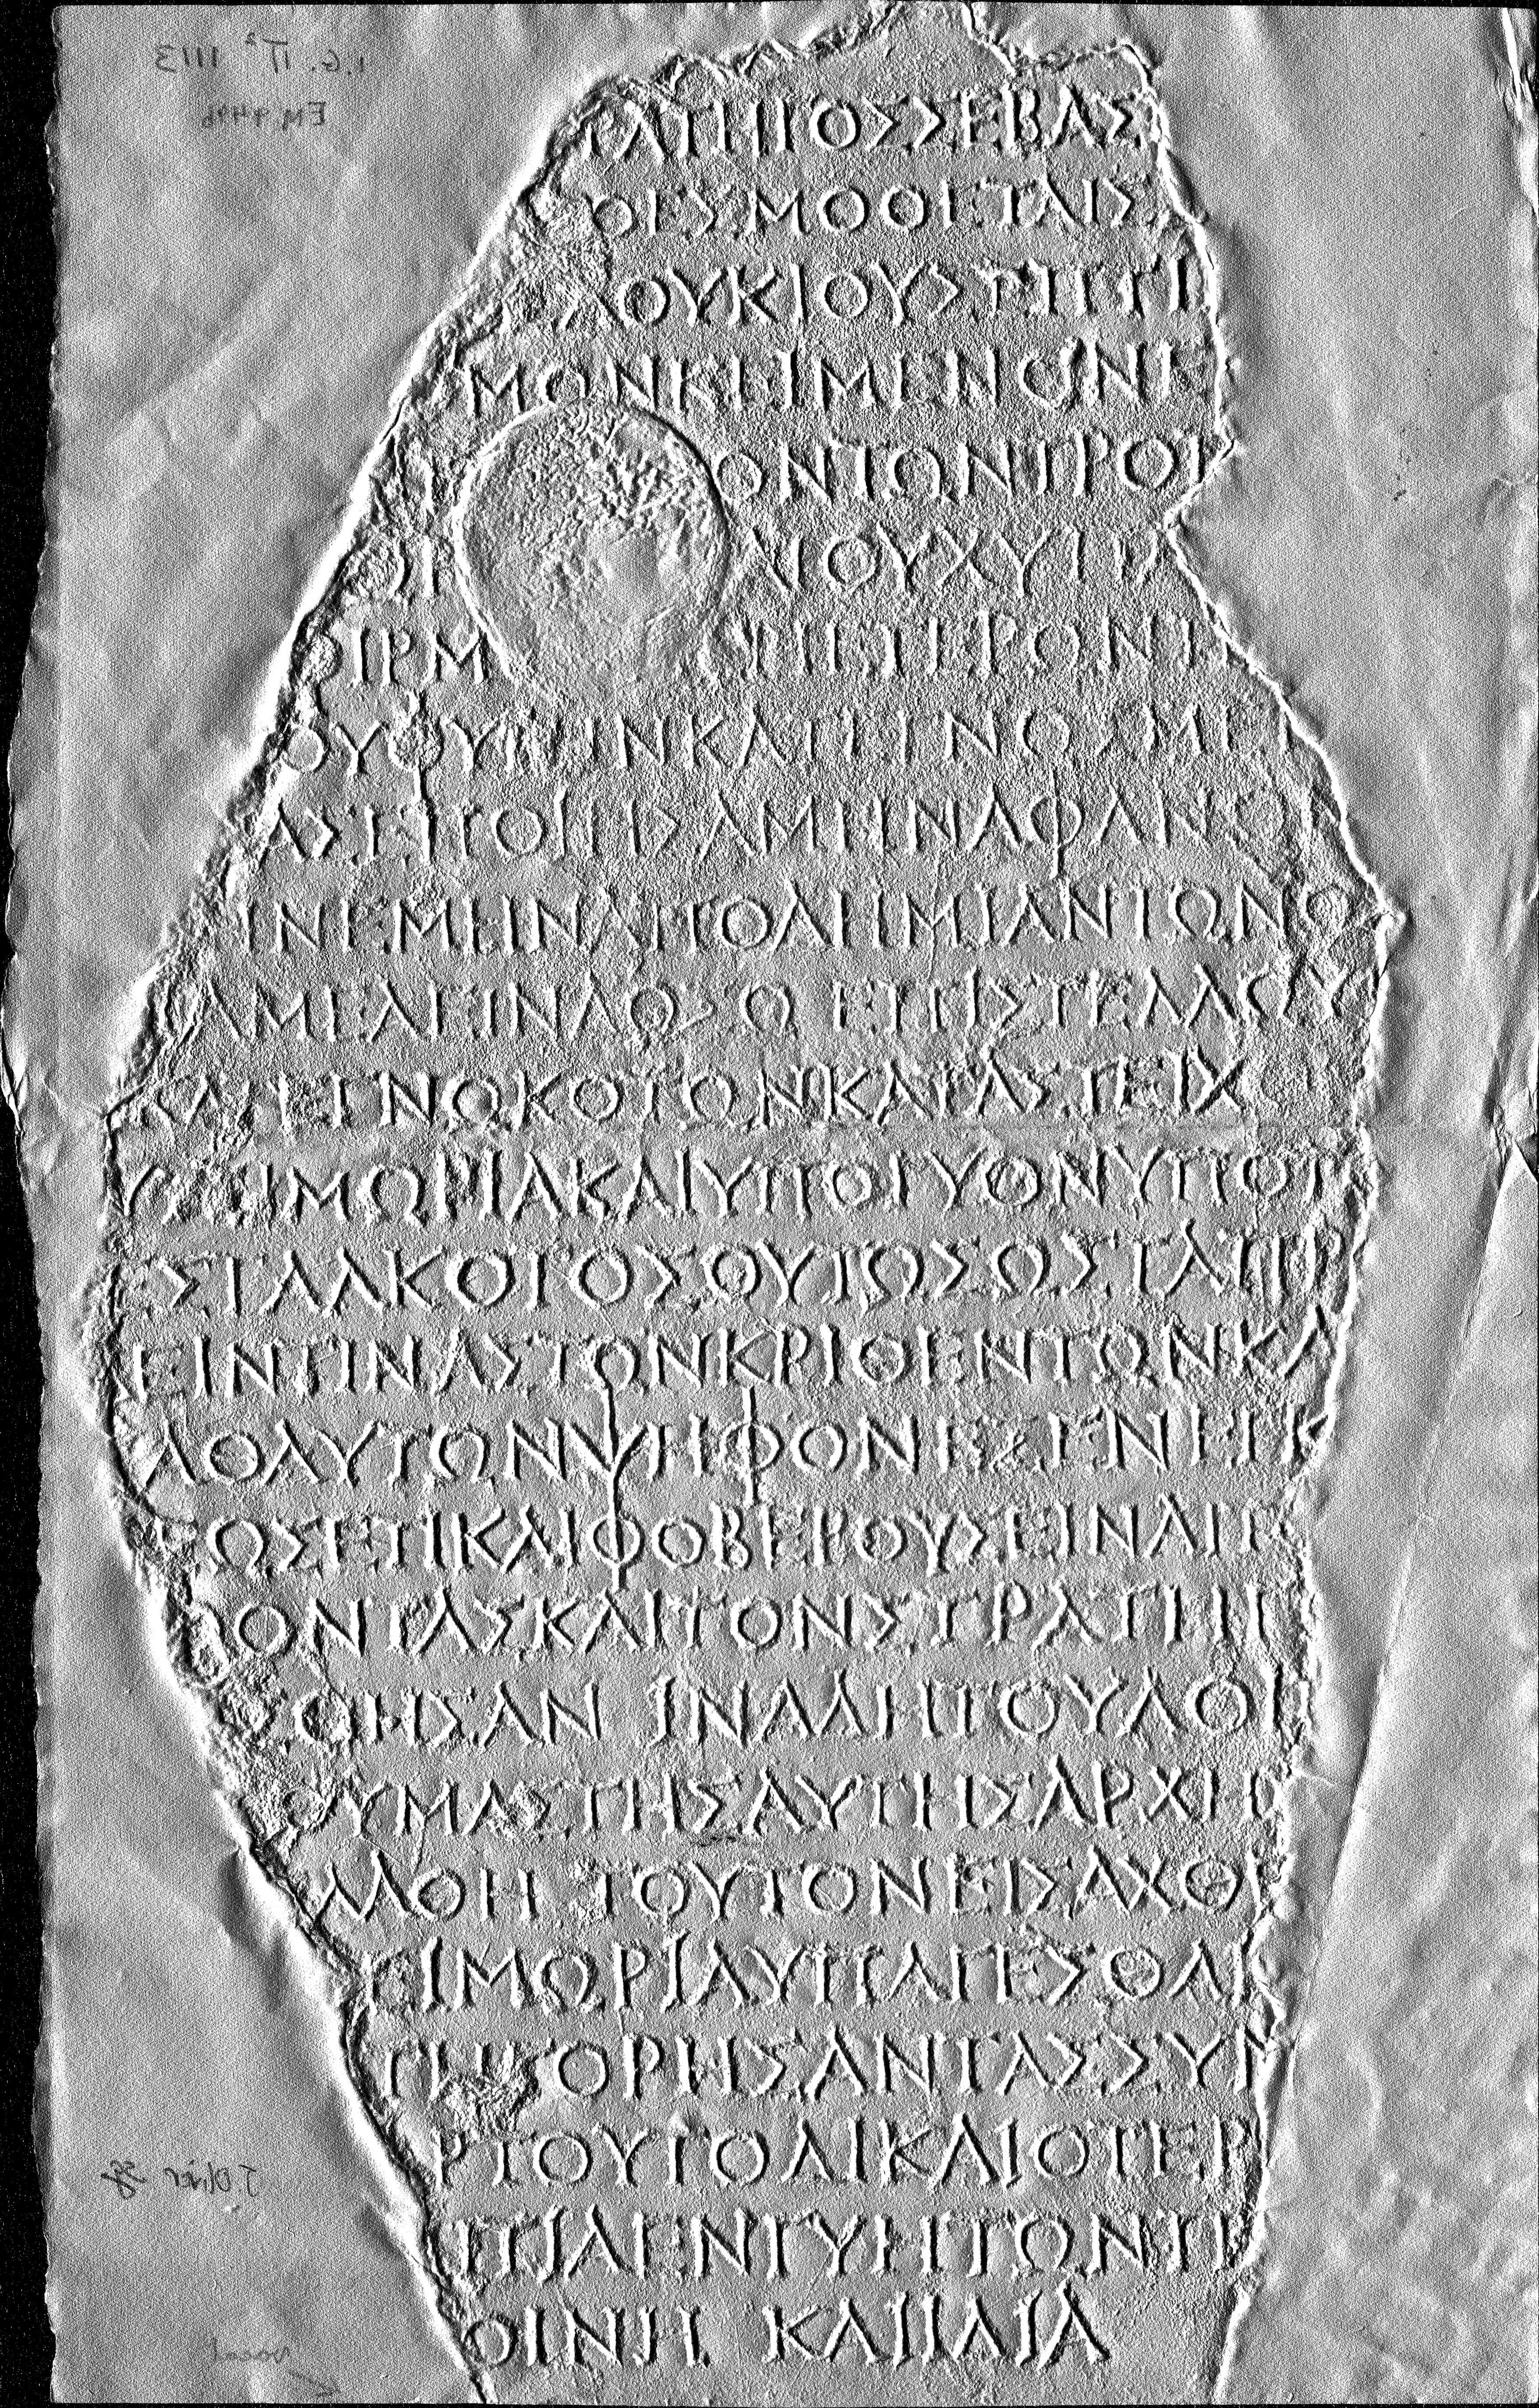 I.G. II² 1113
EM 9496
ΑΤΗΓΟΣΣΕΒΑΣ
ΘΕΣΜΟΘΕΤΑΙΣ
ΛΟΥΚΙΟΥΣΕΠΤΙ
ΜΩΝΚΕΙΜΕΝΩΝΕ
ΟΝΤΩΝΠΡΟΤ
ΝΟΥΧΥΤΡ
ΘΕΡΜ ΕΤΕΡΩΝΤ
ΟΥΘΥΤΕΙΝΚΑΤΕΓΝΩΣΜΕΝ
ΑΣΕΠΟΙΗΣΑΜΗΝΑΦΑΝΩ
ΙΝΕΜΗΝΑΠΟΔΗΜΙΑΝΤΩΝΟ
ΑΜΕΛΕΙΝΔΟΞΩ ΕΠΙΣΤΕΛΛΩΥ
ΚΑΤΕΓΝΩΚΟΤΩΝΚΑΤΑΣΤΕΙΧ
ΤΙΜΩΡΙΑΚΑΙΥΠΟΓΥΟΝΥΠΟΤ
ΣΤΑΛΚΟΤΟΣΟΥΤΩΣΩΣΤΑΠΡ
ΕΙΝΤΙΝΑΣΤΩΝΚΡΙΘΕΝΤΩΝΚΑ
ΛΟΑΥΤΩΝΨΗΦΟΝΕΞΕΝΗΚ
ΩΣΕΤΙΚΑΙΦΟΒΕΡΟΥΣΕΙΝΑΙΤ
ΟΝΤΑΣΚΑΙΤΟΝΣΤΡΑΤΗΓ
ΘΗΣΑΝ ΙΝΑΔΗΤΟΥΛΟΙ
ΥΜΑΣΤΗΣΑΥΤΗΣΑΡΧΗΣ
ΛΛΘΗ ΤΟΥΤΟΝΕΙΣΑΧΘΕ
ΤΙΜΩΡΙΑΥΠΑΓΕΣΘΑΙ
ΤΗΓΟΡΗΣΑΝΤΑΣΣΥΝ
ΡΤΟΥΤΟΔΙΚΑΙΟΤΕΡ
ΕΠΙΔΕΝΓΥΗΤΩΝΤΕ
ΟΙΝΗ ΚΑΙΙΔΙΑ
J. Oliver